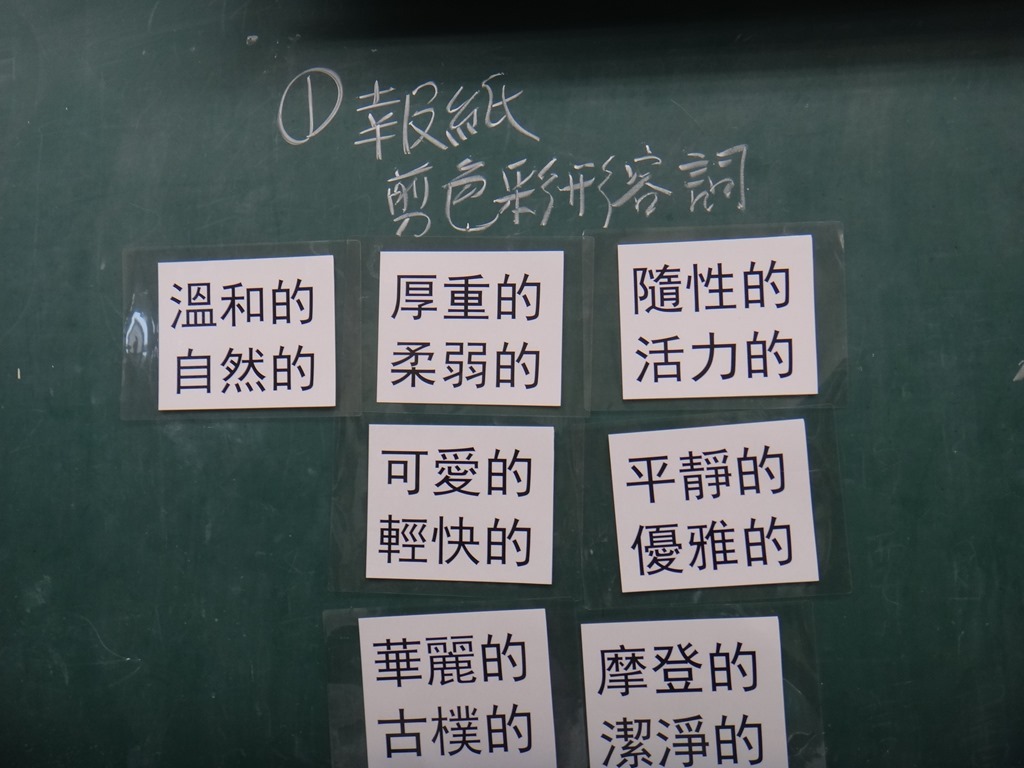 ①報紙
剪色彩形容詞
溫和的
自然的
厚重的
柔弱的
隨性的
活力的
可愛的
輕快的
平靜的
優雅的
華麗的
古樸的
摩登的
潔淨的